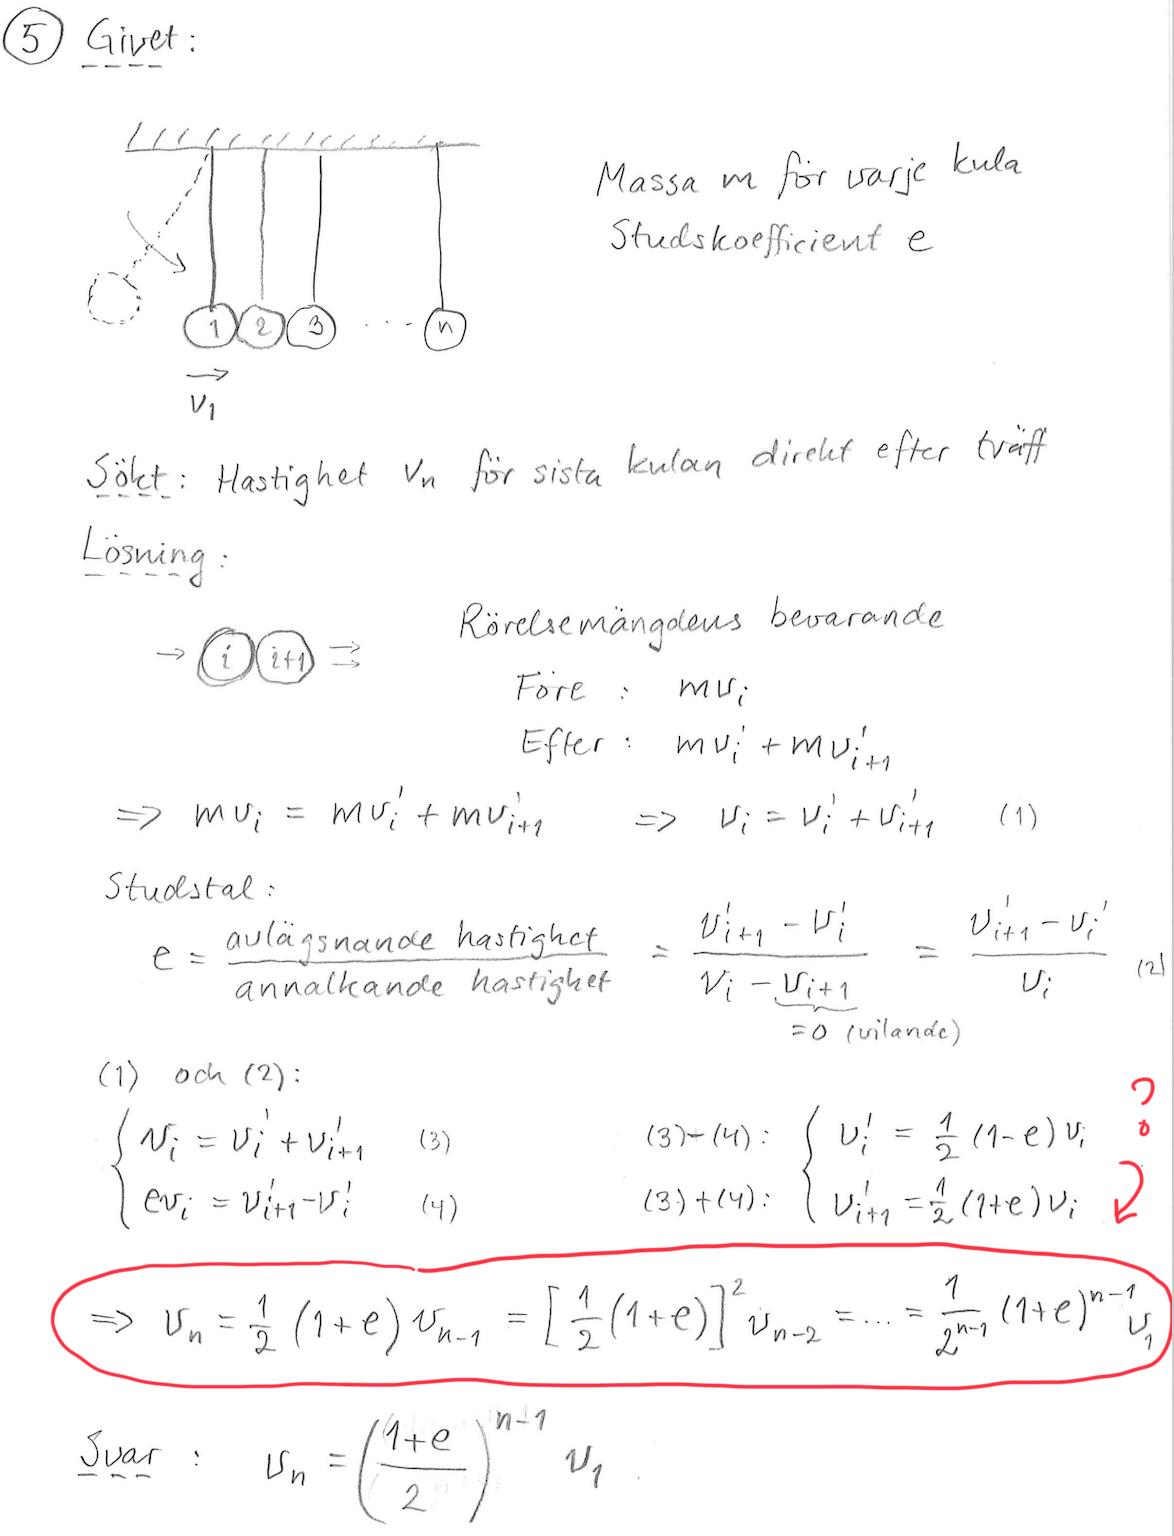 5 Givet:
Massa m för varje kula
Studskoefficient e
1 2 3 ... n
v₁
Sökt: Hastighet vₙ för sista kulan direkt efter träff
Lösning:
→ i i+1 ⇉
Rörelsemängdens bevarande
Före : mvᵢ
Efter : mvᵢ' + mv'ᵢ₊₁
=> mvᵢ = mvᵢ' + mv'ᵢ₊₁ => vᵢ = vᵢ' + v'ᵢ₊₁ (1)
Studstal:
e = avlägsnande hastighet / annalkande hastighet = (v'ᵢ₊₁ - vᵢ') / (vᵢ - vᵢ₊₁) = (v'ᵢ₊₁ - vᵢ') / vᵢ (2)
=0 (vilande)
(1) och (2):
?
{ vᵢ = vᵢ' + v'ᵢ₊₁ (3) (3)-(4): { vᵢ' = 1/2 (1-e) vᵢ
{ evᵢ = v'ᵢ₊₁ - vᵢ' (4) (3)+(4): { v'ᵢ₊₁ = 1/2 (1+e) vᵢ
=> vₙ = 1/2 (1+e) vₙ₋₁ = [1/2 (1+e)]² vₙ₋₂ = ... = 1/2ⁿ⁻¹ (1+e)ⁿ⁻¹ v₁
Svar : vₙ = ((1+e)/2)ⁿ⁻¹ v₁